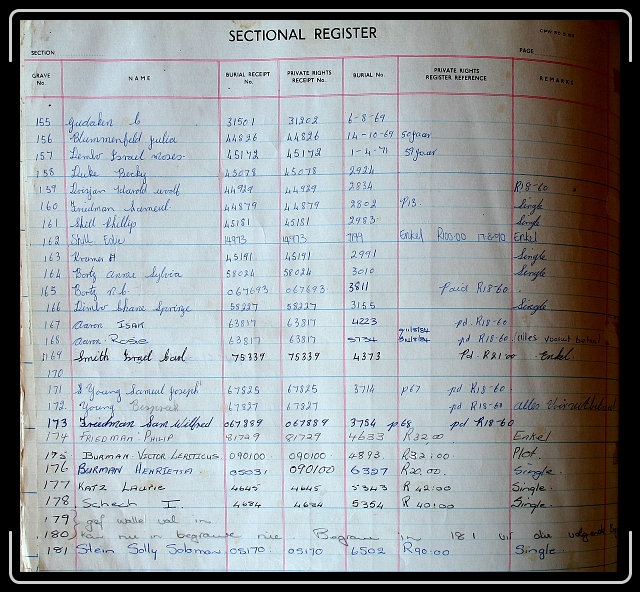 SECTIONAL REGISTER
SECTION PAGE
GRAVE No. NAME BURIAL RECEIPT No. PRIVATE RIGHTS RECEIPT No. BURIAL No. PRIVATE RIGHTS REGISTER REFERENCE REMARKS
155 31501 31202 6-8-69
156 Blummenfeld Julia 44826 44826 14-10-69 50 jaar
157 Israel Moses 45142 45142 1-4-71 50 jaar
158 Luke Becky 45078 45078 2924
159 Harold Woolf 44929 44929 2834 R18-60
160 Friedman Samuel 44879 44879 2802 P13. Single
161 Phillip 45181 45181 2983 Single
162 Edie 14973 14973 Enkel R100.00 Enkel
163 Kramer H 45191 45191 2991 Single
164 Bortz Annie Sylvia 58024 58024 3010 Single
165 Bortz 067693 067693 3811 Paid R18-60
166 Limbo Chane 58227 58227 3155 Single
167 Aaron ISAK 63817 63817 4223 pd. R18-60
168 Aaron Rosie 63817 63817 5734 pd R18-60
169 Smith Israel Carl 75339 75339 4373 Pd-R21.00 Enkel
170
171 Young Samuel Joseph 67825 67825 3714 p67 pd R18-60
172 Young 67827 67827 pd R18-60 alles
173 Friedman Sam Wilfred 067889 067889 3754 p68 pd R18-60
174 FRIEDMAN PHILIP 81729 81729 4633 R32.00 Enkel
175 BURMAN VICTOR 090100 090100 4893 R32:00 Plot.
176 BURMAN HENRIETTA 05031 090100 6327 R20.00. Single
177 KATZ LAURIE 4645 4645 5343 R 42:00 Single.
178 Schach I. 4684 4684 5354 R 40:00 Single.
179 wal in
180 nie in begrawe nie. Begrawe in 181 uit die
181 Stein Solly Soloman 05170 05170 6502 R90.00 Single